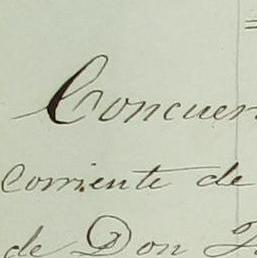 Concuer
corriente de
de Don